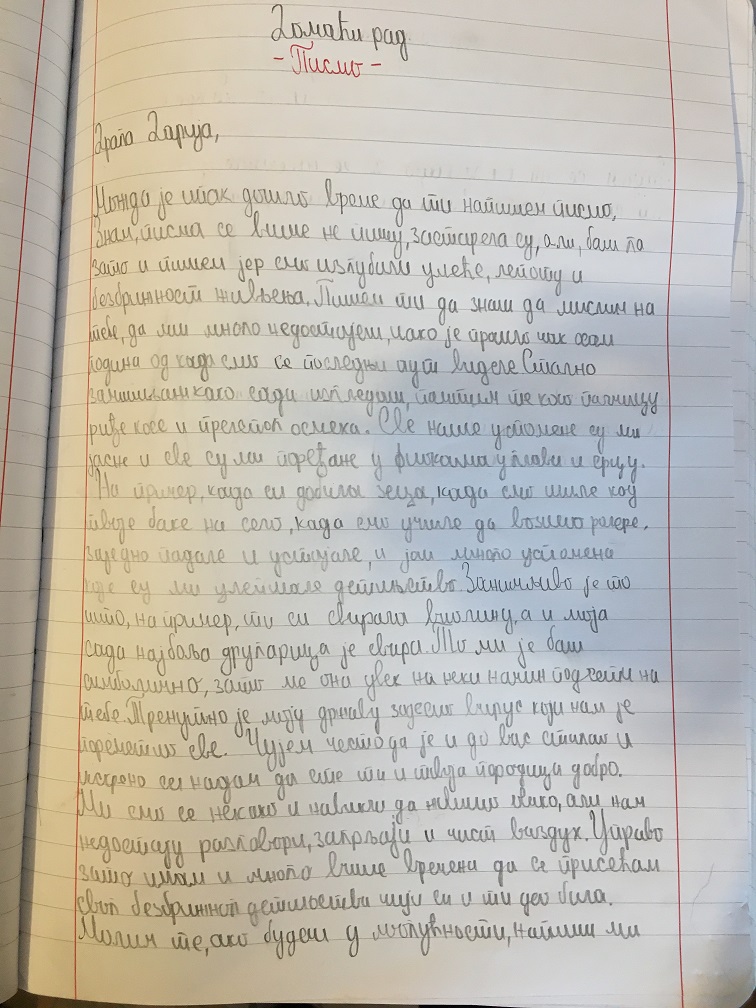 Домаћи рад
- Писмо -
Драга Дарија,
Можда је ипак дошло време да ти напишем писмо.
Знам, писма се више не пишу, застарела су, али, баш га
зато и пишем јер смо изгубили умеће, лепоту и
безбрижност живљења. Пишем ти да знаш да мислим на
тебе, да ми много недостајеш, иако је прошло чак осам
година од када смо се последњи пут виделе. Стално
замишљам како сада изгледаш, памтим те као паметницу
риђе косе и прелепог осмеха. Све наше успомене су ми
јасне и све су ми поређане у фиокама у глави и срцу.
На пример, када си добила зеца, када смо ишле код
твоје баке на село, када смо училе да возимо ролере,
заједно падале и устајале, и још много успомена
које су ми улепшале детињство. Занимљиво је то
што, на пример, ти си свирала виолину, а и моја
сада најбоља другарица је свира. То ми је баш
симболично, зато ме она увек на неки начин подсети на
тебе. Тренутно је моју државу задесио вирус који нам је
пореметио све. Чујем често да је и до вас стигао и
искрено се надам да сте ти и твоја породица добро.
Ми смо се некако и навикли да живимо овако, али нам
недостају разговори, загрљаји и чист ваздух. Управо
зато имам и много више времена да се присећам
свог безбрижног детињства чији си и ти део била.
Молим те, ако будеш у могућности, напиши ми